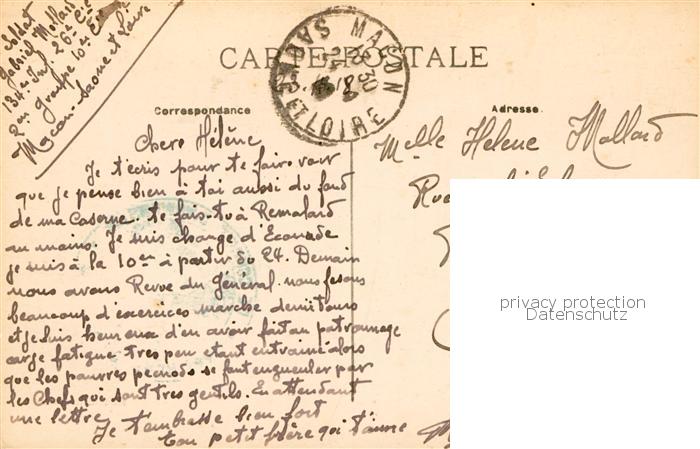 Soldat
Gabriel Mollard
134e Inf. 26e Cie
2em groupe 10er Es
Macon. Saone et Loire
CARTE POSTALE
MACON
SAONE ET LOIRE
18 30
Correspondance
Adresse.
Chere Hélène
Je t'écris pour te faire voir
que je pense bien à toi aussi du fond
de ma Caserne. te fais-tu à Remalard
au moins. Je suis change d'Ecouade
je suis à la 10er à partir du 24. Demain
nous avons Revue du Général. nous fesons
beaucoup d'exercices marche demi tours
et je suis heureux d'en avoir fait au patronnage
car je fatigue tres peu etant entrainé alors
que les pauvres pecnods se font engueuler par
les Chefs qui sont tres gentils. En attendant
une lettre
Je t'embrasse bien fort
ton petit frère qui t'aime
Melle Helene Mollard
Rue
privacy protection
Datenschutz